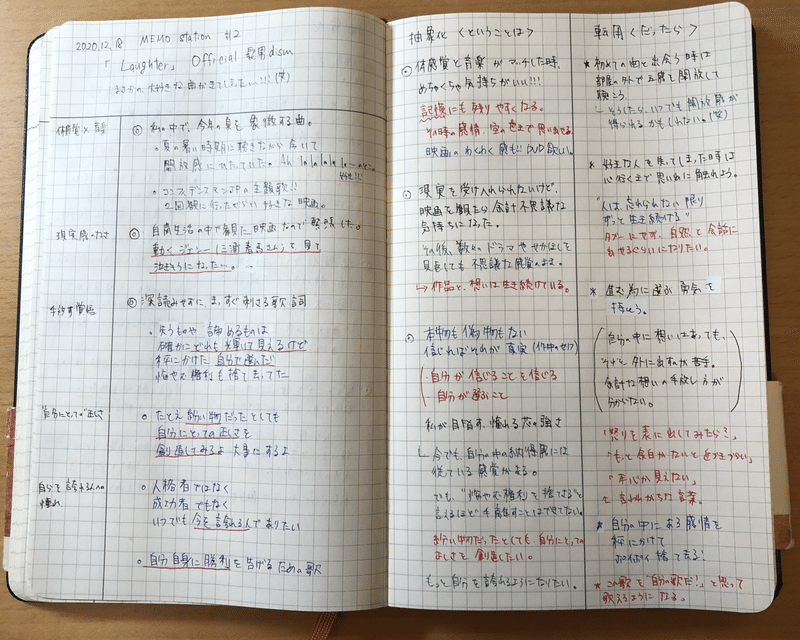 2020.12.18 MEMO station #12
「Laughter」 Official髭男dism
体感覚×音
◎ 私の中で、今年の夏を象徴する曲。
・夏の暑い時期に聴きながら歩いて
開放感にひたっていた。Ah lalalala
・コンフィデンスマンJPの主題歌!!
2回観に行ったぐらい好きな映画。
現実感のなさ
◎ 自粛生活の中で観た映画なので緊張した。
動くジェシー(三浦春馬さん)を見て
泣きそうになった…。
手放す覚悟
◎ 深読みせずに、まっすぐ刺さる歌詞
・失うものや 諦めるものは
確かにどれも 輝いて見えるけど
秤にかけた 自分で選んだ
悔やむ権利も 捨て去ってた
"自分にとっての"正しさ
○ たとえ紛い物だったとしても
自分にとっての正しさを
創造してみるよ 大事にするよ
自分を誇れる人への
憧れ
○ 人格者ではなく
成功者でもなく
いつでも今を誇れる人でありたい
○ 自分自身に勝利を告げるための歌
抽象化<ということは>
◎ 体感覚と音楽がマッチした時、
めちゃくちゃ気持ちがいい!!!
記憶にも残りやすくなる。
その時の感情、空の色まで思い出せる
映画のわくわく感も! DVD欲しい。
◎ 現実を受け入れられないけど、
映画を観たら余計不思議な
気持ちになった。
その後、数々のドラマやせかほしを
見返しても不思議な感覚のまま。
→作品と、想いは生き続けている。
◎ 本物も偽物もない
信じればそれが真実(作中のセリフ)
・自分が信じることを信じる
・自分が選ぶこと
私が目指す、憧れる芯の強さ
今でも、自分の中の納得感には
従っている感覚がある。
でも、"悔やむ権利を捨てる"と
言えるほど手放すことはできてない。
紛い物だったとしても、自分にとっての
正しさを創造したい。
もっと自分を誇れるようになりたい。
転用<だったら>
* 初めての曲と出会う時は
部屋の外で五感を開放して
聴こう
→そうしたら、いつでも開放感が
得られるかもしれない。(笑)
* 好きな人を失ってしまった時は
心行くまで思い出に触れよう。
"人は、忘れられない限り
ずっと生き続ける"
タブーにせず、自然と会話に
出せるぐらいになりたい。
* 進む為に選ぶ勇気を
持とう。
自分の中に想いはあっても、
それを外に出すのが苦手。
余計な想いの手放し方が
分からない。
「怒りを表に出してみたら?」
「もっと余白がないと近づきづらい」
「本心が見えない」
と言われがちな言葉。
* 自分の中にある感情を
秤にかけて
ポイポイ捨て去る!
* この歌を"自分の歌だ!"と思って
歌えるようになる。